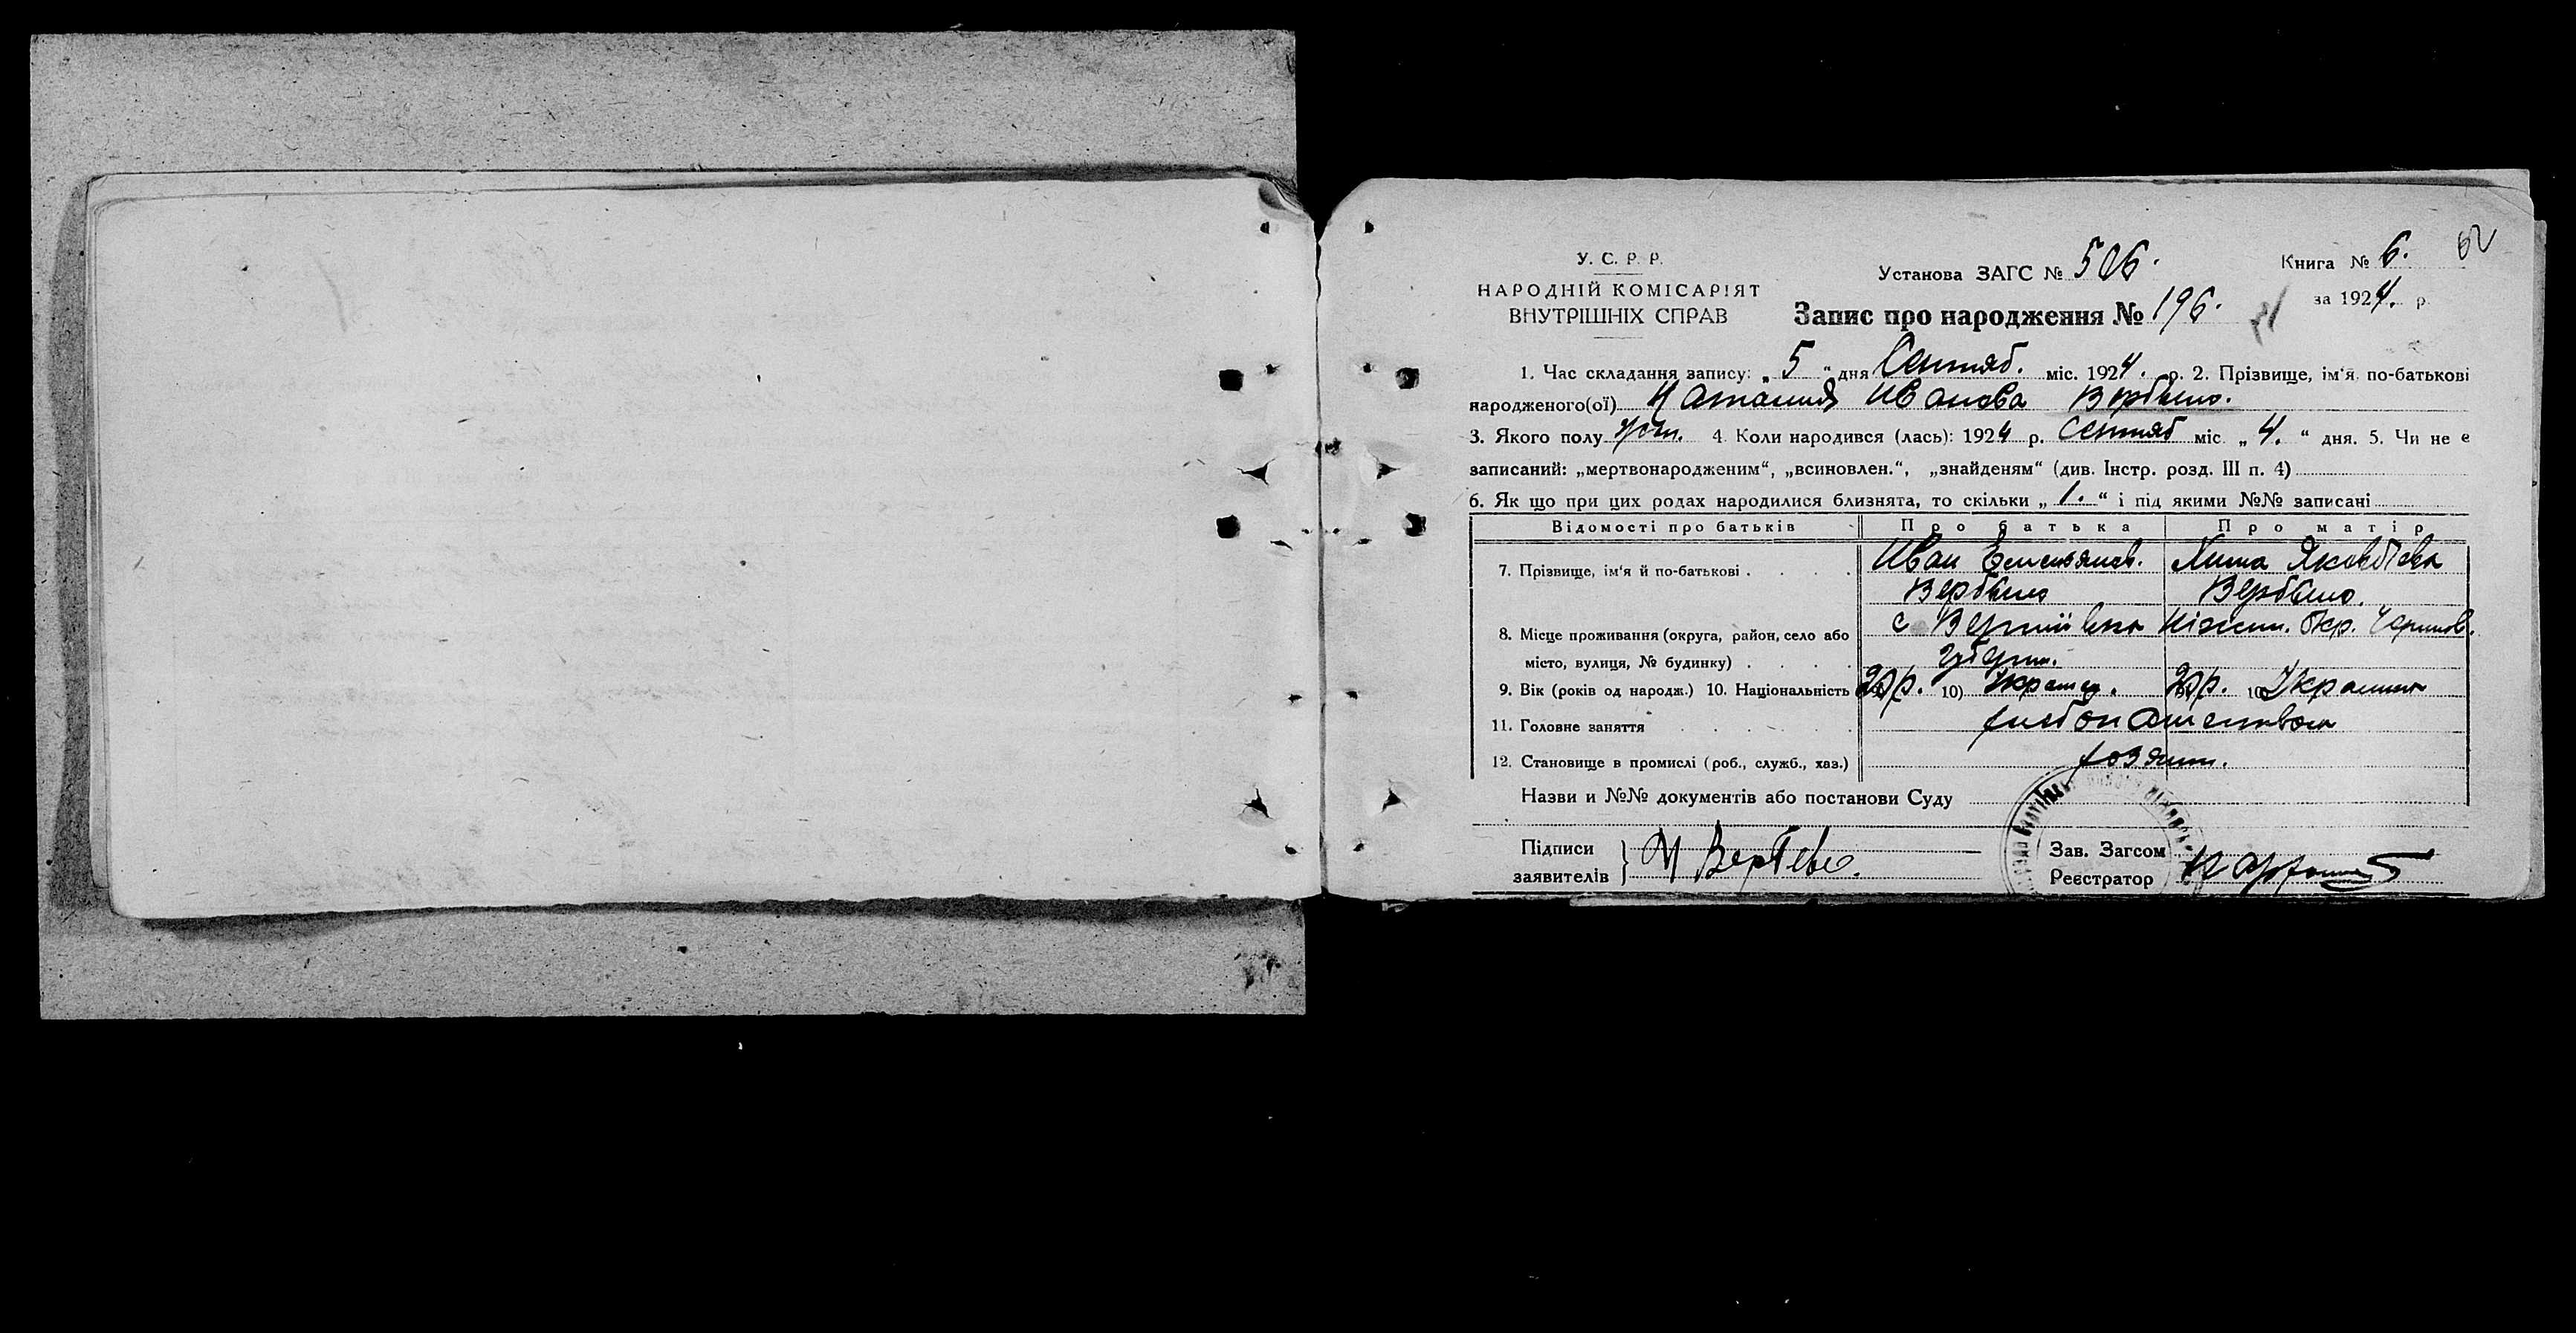 62
У. С. Р. Р.
Установа ЗАГС № 506.
Книга № 6.
НАРОДНІЙ КОМІСАРІЯТ
ВНУТРІШНІХ СПРАВ
Запис про народження № 196.
за 1924. р.
1. Час складання запису: „5“ дня Сентяб. міс. 1924. р. 2. Прізвище, ім‘я по-батькові
народженого(ої) Наталия Иванова Вербыло.
3. Якого полу жен. 4. Коли народився (лась): 1924 р. Сентяб міс. „4.“ дня. 5. Чи не є
записаний: „мертвонародженим“, „всиновлен.“, „знайденям“ (див. Інстр. розд. III п. 4)
6. Як що при цих родах народилися близнята, то скільки „1.“ і під якими №№ записані
Відомості про батьків Про батька Про матір
7. Прізвище, ім‘я й по-батькові Иван Емельянов. Яковлева
Вербыло Вербыло.
8. Місце проживання (округа, район, село або с Вертіївка Ніжин. Окр. Чернигов.
місто, вулиця, № будинку) Губерн.
9. Вік (років од народж.) 10. Національність 10) Украинец. Украинка
11. Головне заняття хлебопашеством
12. Становище в промислі (роб., служб., хаз.) хозяин.
Назви и №№ документів або постанови Суду
Підписи
заявителів
Зав. Загсом
Реєстратор